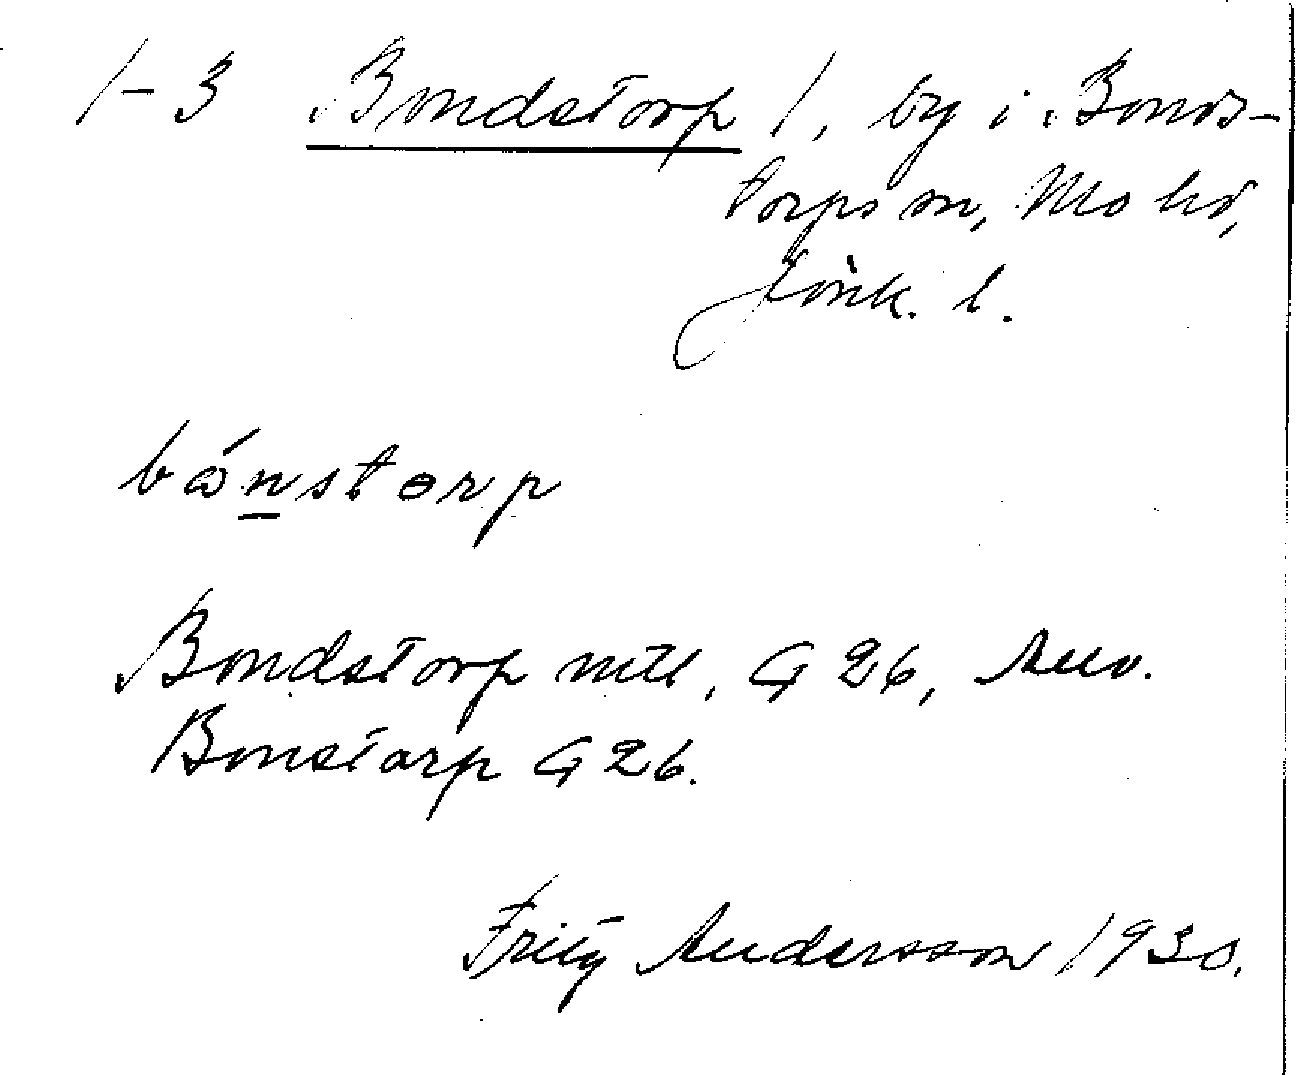 1-3 Bondstorp 1, by i Bonds-
torps sn, Mo hd,
Jönk. l.
bánstorp
Bondstorp mtl, G 26,
Bonstarp G 26.
Fritz Andersson 1930.